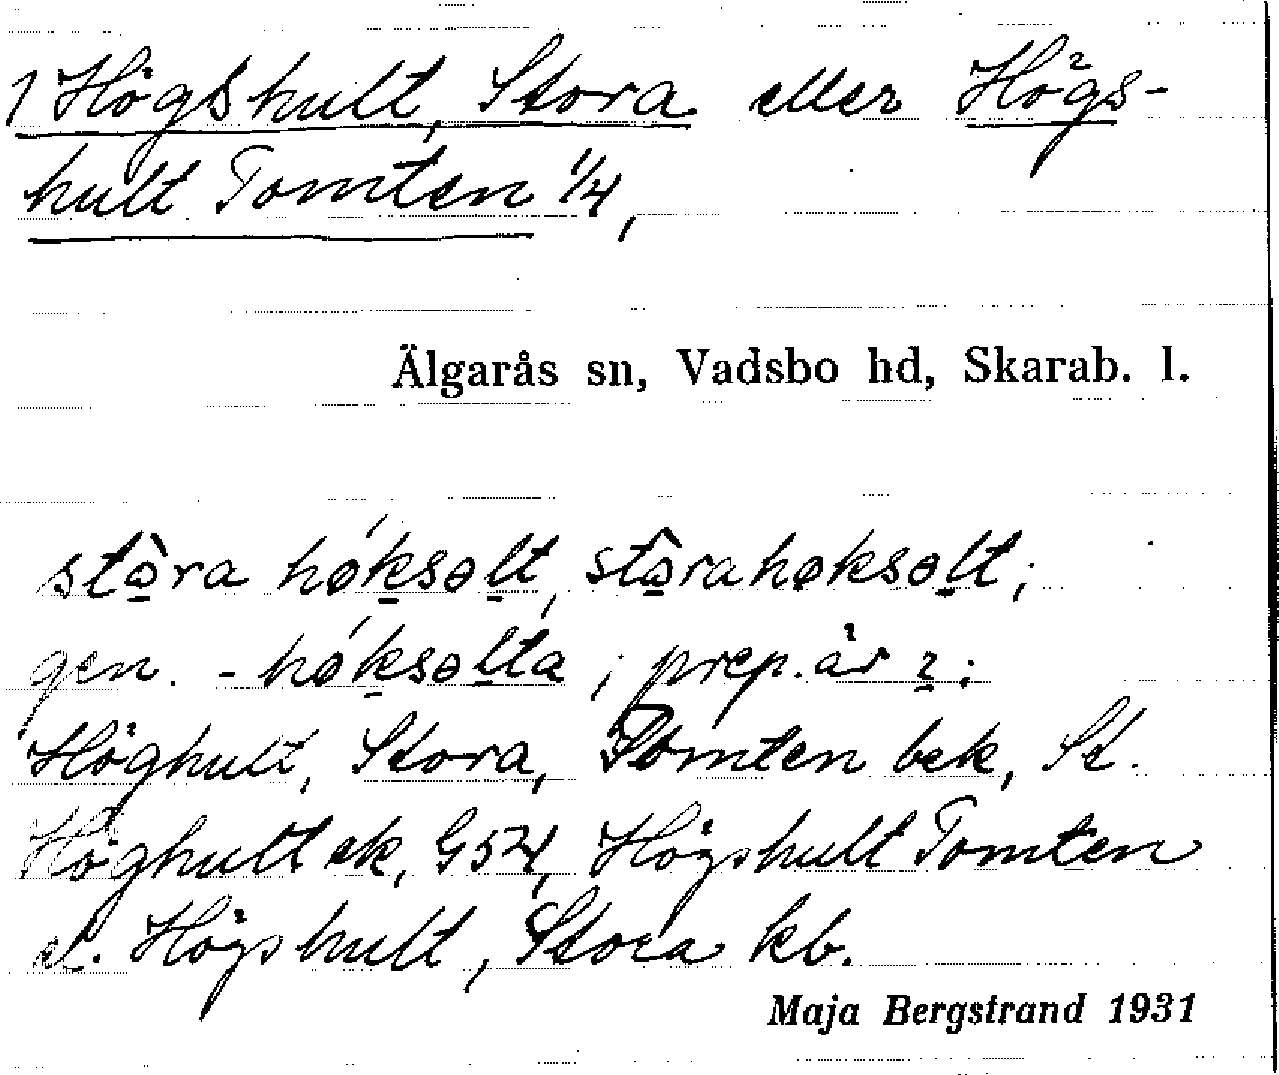 1 Högshult, Stora eller Högs-
hult Tomten 1/4,
Älgarås sn, Vadsbo hd, Skarab. l.
stɔ̀ra høksəlt, stɔ̂rahøksəlt;
gen. -høksəlta; prep. är ı:
Höghult, Stora, Tomten bek, St.
Höghult ek, G 54, Högshult Tomten
el. Högshult, Stora kb.
Maja Bergstrand 1931